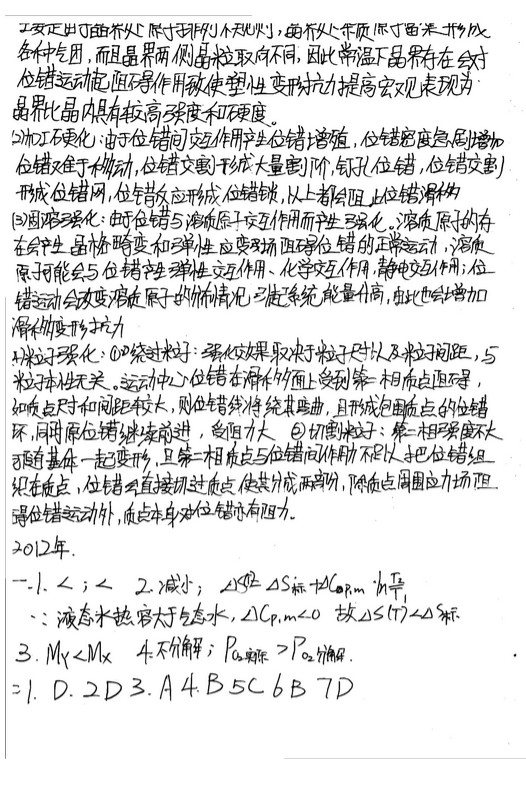 主要是由于晶界处原子排列不规则,晶界处杂质原子富集形成
各种气团,而且晶界两侧晶粒取向不同,因此常温下晶界存在会对
位错运动起阻碍作用致使塑性变形抗力提高宏观表现为
晶界比晶内具有较高强度和硬度。
(2)加工硬化:由于位错间交互作用产生位错增殖,位错密度急剧增加
位错难于移动,位错交割形成大量割阶,钉扎位错,位错交割
形成位错网,位错反应形成位错锁,以上都会阻止位错滑移
(3)固溶强化:由于位错与溶质原子交互作用而产生强化。溶质原子的存
在会产生晶格畸变和弹性应变场阻碍位错的正常运动,溶质
原子可能会与位错产生弹性交互作用、化学交互作用,静电交互作用;位
错运动会改变溶质原子的分布情况引起系统能量升高,由此也会增加
滑移变形抗力
粒子强化:①绕过粒子:强化效果取决于粒子尺寸以及粒子间距,与
粒子本性无关。运动中心位错在滑移面上受到第二相质点阻碍,
如质点尺寸和间距较大,则位错线将绕其弯曲,且形成包围质点的位错
环,同时原位错继续前进,受阻力大 ②切割粒子:第二相强度不大
可随基体一起变形,且第二相质点与位错间作用力不足以把位错组
织在质点,位错会直接切过质点使其分成两部分,除质点周围应力场阻
碍位错运动外,质点本身对位错亦有阻力。
2012年.
一.1. <;< 2.减小; ΔS = ΔS标+ΔCp,m·ln T2/T1
∵液态水热容大于气态水,ΔCp,m<0 故ΔS(T)<ΔS标
3. My<Mx 4.不分解; PO2实际 >PO2分解.
二1. D. 2D 3. A 4. B 5C 6B 7D